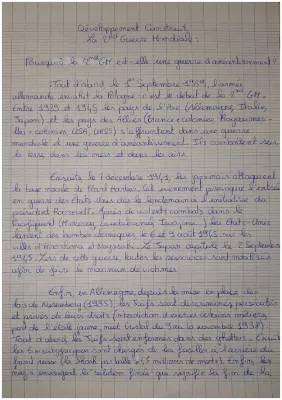 Développement Construit
La 2nd Guerre Mondiale:
Pourquoi la 2nd GM est-elle une guerre d'anéantissement?
Tout d'abord, le 1er Septembre 1939, l'armée
allemande envahit la Pologne c'est le début de la 2nd GM.
Entre 1939 et 1945 les pays de l'Axe (Allemagne, Italie,
Japon) et les pays des Alliés (France + colonies, Royaume-
Uni + colonies, USA, URSS) s'affrontent dans une guerre
mondiale et une guerre d'anéantissement. Ils combattent sur
la terre, dans les mers et dans les airs.
Ensuite, le 7 décembre 1941, les japonais attaquent
la base navale de Pearl Harbor. Cet événement provoque l'entrée
en guerre des Etats-Unis dès le lendemain à l'initiative du
président Roosevelt. Après de violents combats dans le
Pacifique les Etats-Unis
lancent les bombes atomiques le 6 et 9 août 1945 sur les
villes d'Hiroshima et Nagasaki. Le Japon capitule le 2 Septembre
1945. Lors de cette guerre, toutes les ressources sont mobilisées
afin de faire le maximum de victimes.
Enfin, en Allemagne, depuis la mise en place des
lois de Nuremberg (1935), les Juifs sont discriminés, persécutés
et privés de leurs droits (interdiction d'exercer certains métiers,
port de l'étoile jaune, nuit de cristal du 9 au 10 novembre 1938)
Tout d'abord, les Juifs sont enfermés dans des ghettos. Ensuite
les Einsatzgruppen sont chargés de les fusiller à l'arrière du
front russe (la Shoah par balle = 1,5 millions de morts). Enfin, les
nazis envisagent la solution finale qui signifie la fin de la